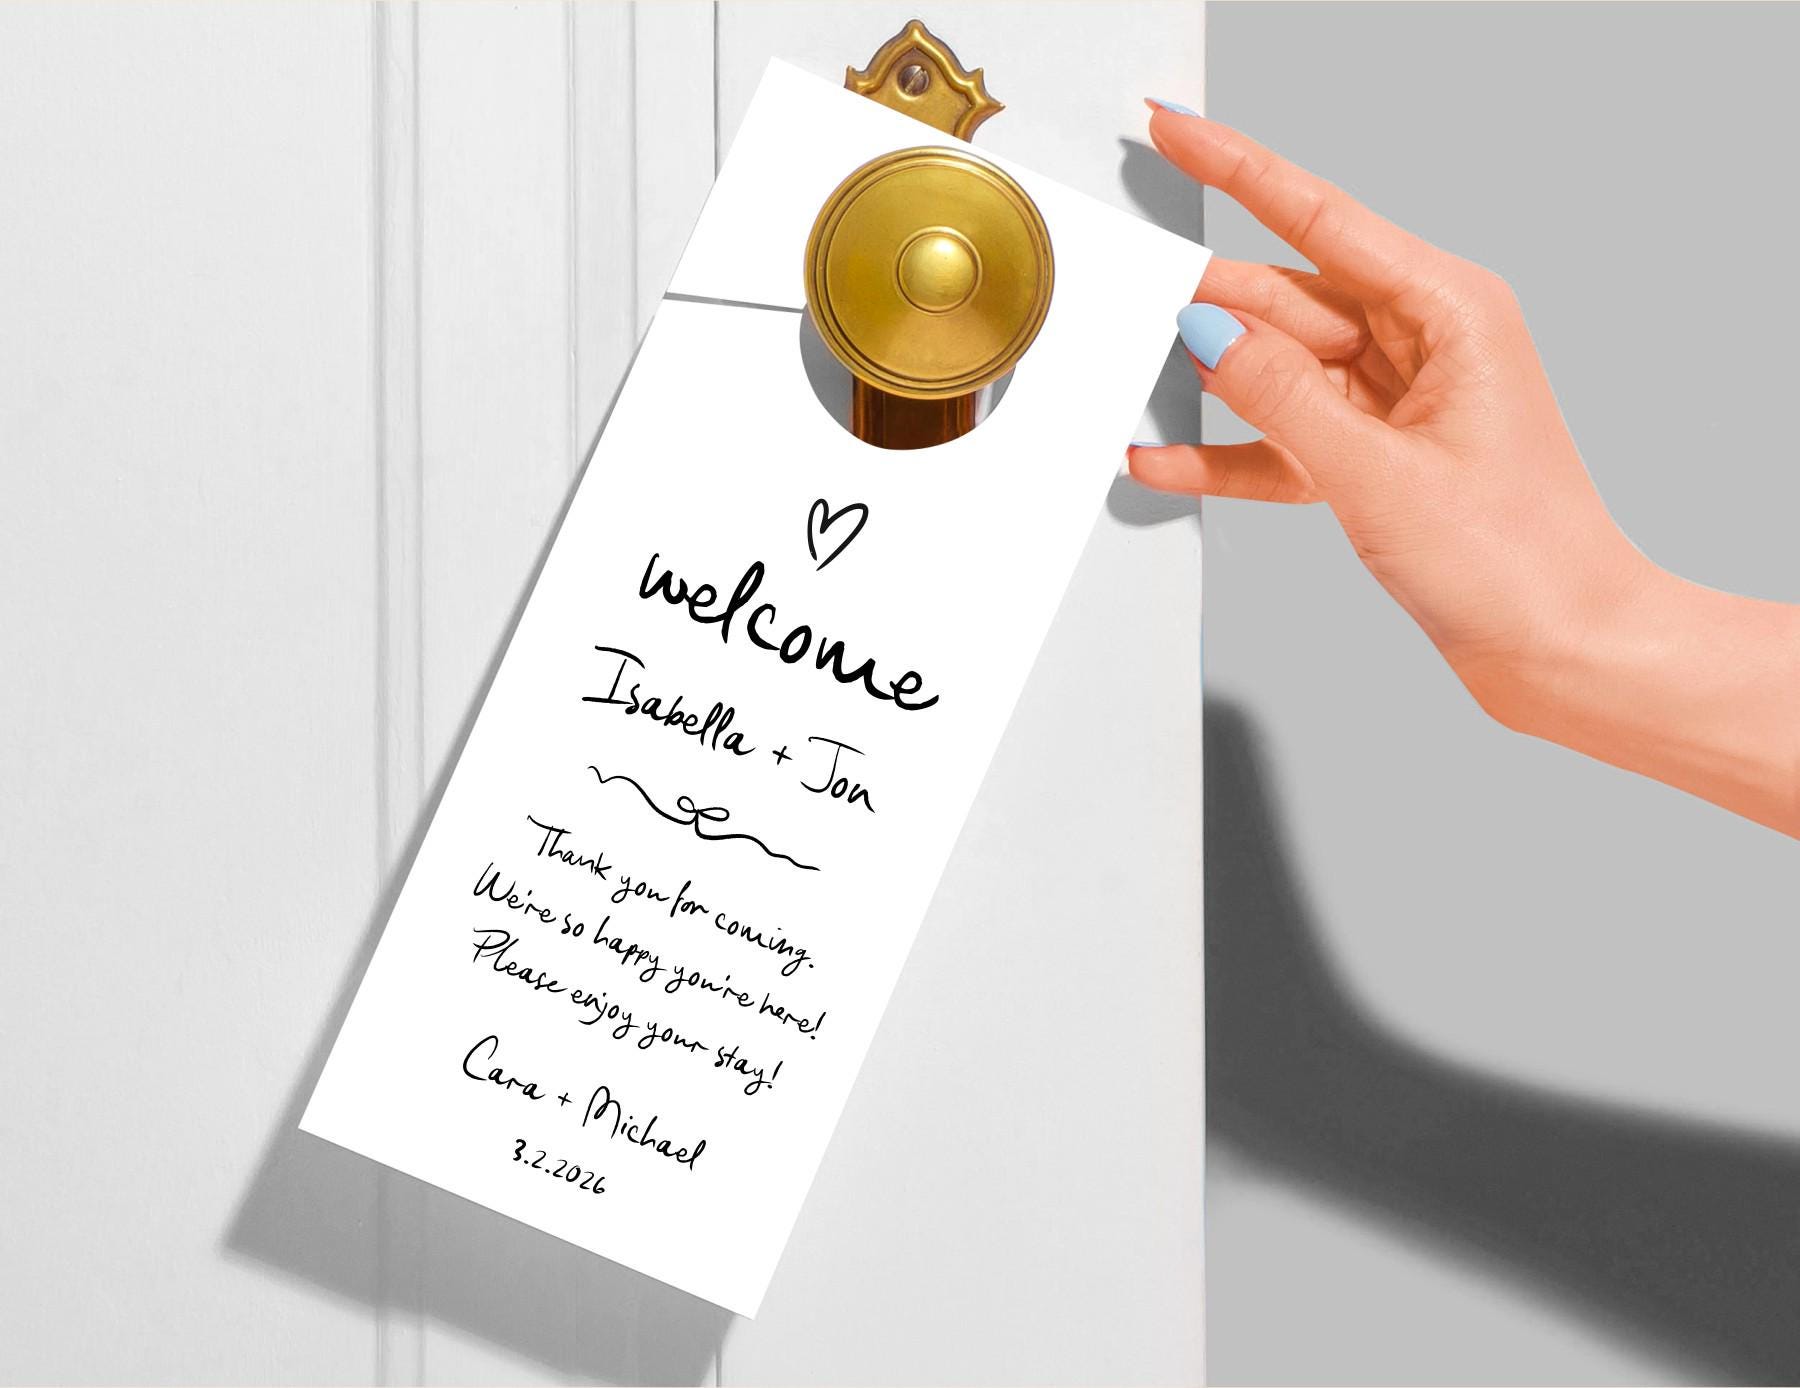 welcome
Isabella + Jon
Thank you for coming.
We're so happy you're here!
Please enjoy your stay!
Cara + Michael
3.2.2026